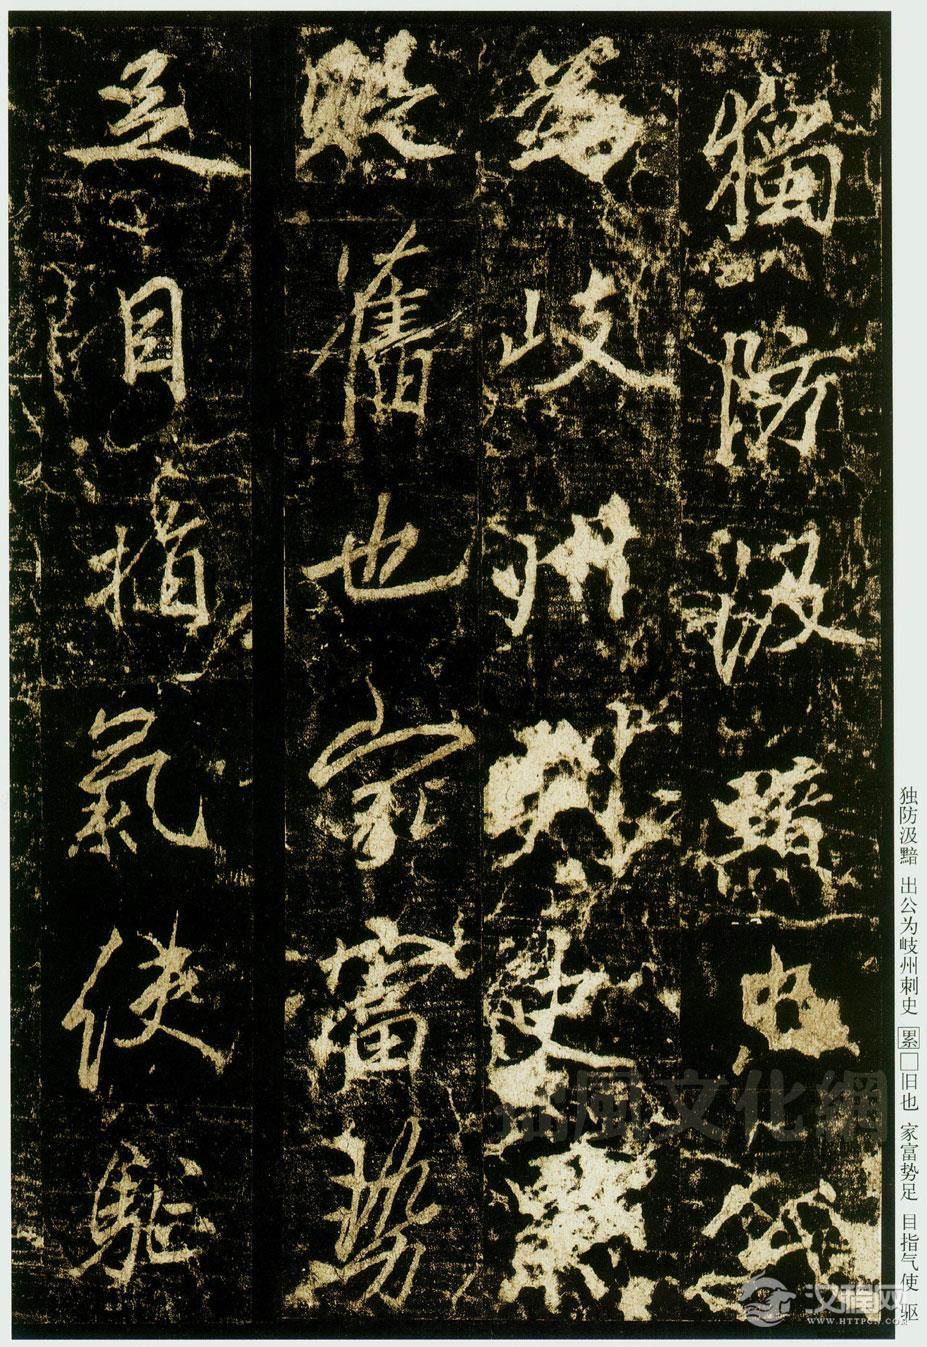 獨防汲黯出公
為岐州刺史累
舊也家富勢
足目指氣使駈
独防汲黯 出公为岐州刺史 累□旧也 家富势足 目指气使 驱
風文化網
汉程网
WWW.HTTPCN.COM